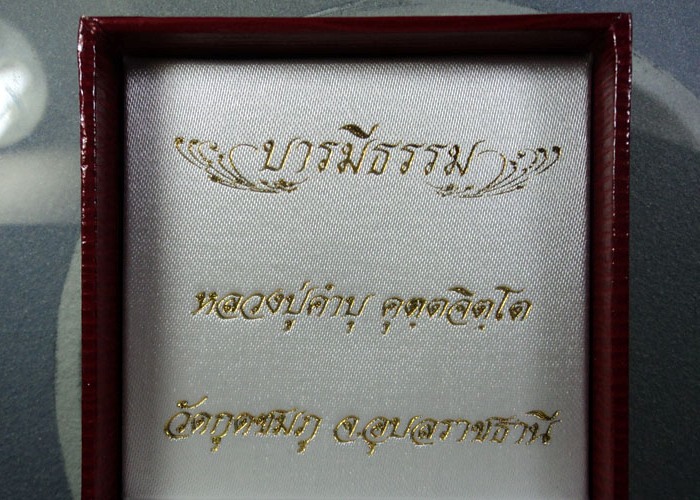 บารมีธรรม
หลวงปู่คำบุ คุตฺตจิตฺโต
วัดกุดชมภู จ.อุบลราชธานี